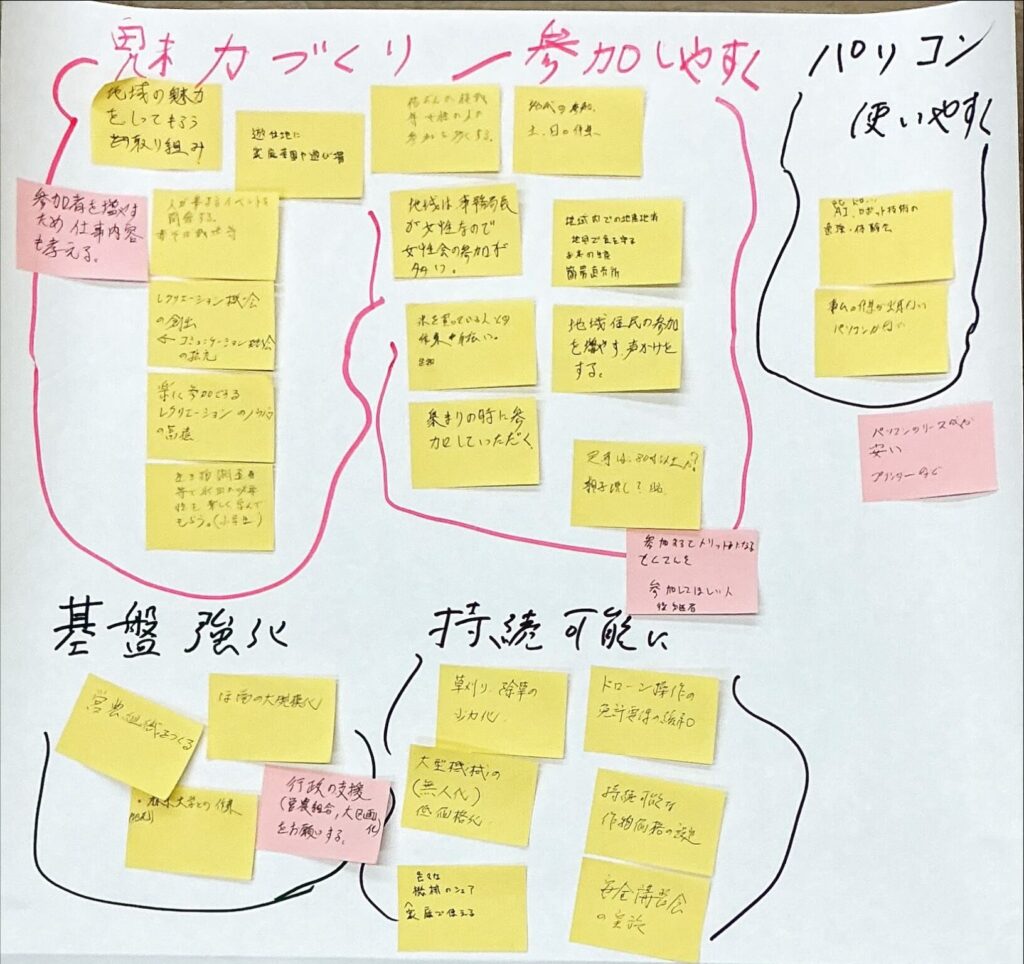 魅力づくり
参加しやすく
パソコン
使いやすく
地域の魅力
をしってもらう
取り組み
遊休地に
家庭菜園や遊び場
参加を多くする。
土、日の作業、
参加者を増やす
ため仕事内容
も考える。
人が集まるイベントを
開催する。
地域は事務局民
が女性なので
女性会の参加が
多い。
地域内での地産地消
お米の
簡易直売所
AI、ロボット技術の
レクリエーション機会
の創出
← コミュニケーション機会
の拡充
米を買っている人との
作業
地域住民の参加
を増やす声かけを
する。
パソコンが
楽に参加できる
レクリエーションのノウハウ
の
集まりの時に参
加していただく。
パソコンのリース代が
安い
プリンターなど
生き物調査
等で水田の
性を楽しく学んで
もらう。(小学生)
定年は、80才以上へ?
参加するとメリットになる
とくてんを
参加してほしい人
後継者
基盤強化
持続可能に
営農組織をつくる
ほ場の大規模化
大学との作業
行政の支援
(営農組合,大区画化)
をお願いする。
草刈り、除草の
省力化
ドローン操作の
免許取得の緩和
大型機械の
(無人化)
低価格化
持続可能な
作物価格の設定
色々な
機械のシェア
家庭で使える
安全講習会
の実施